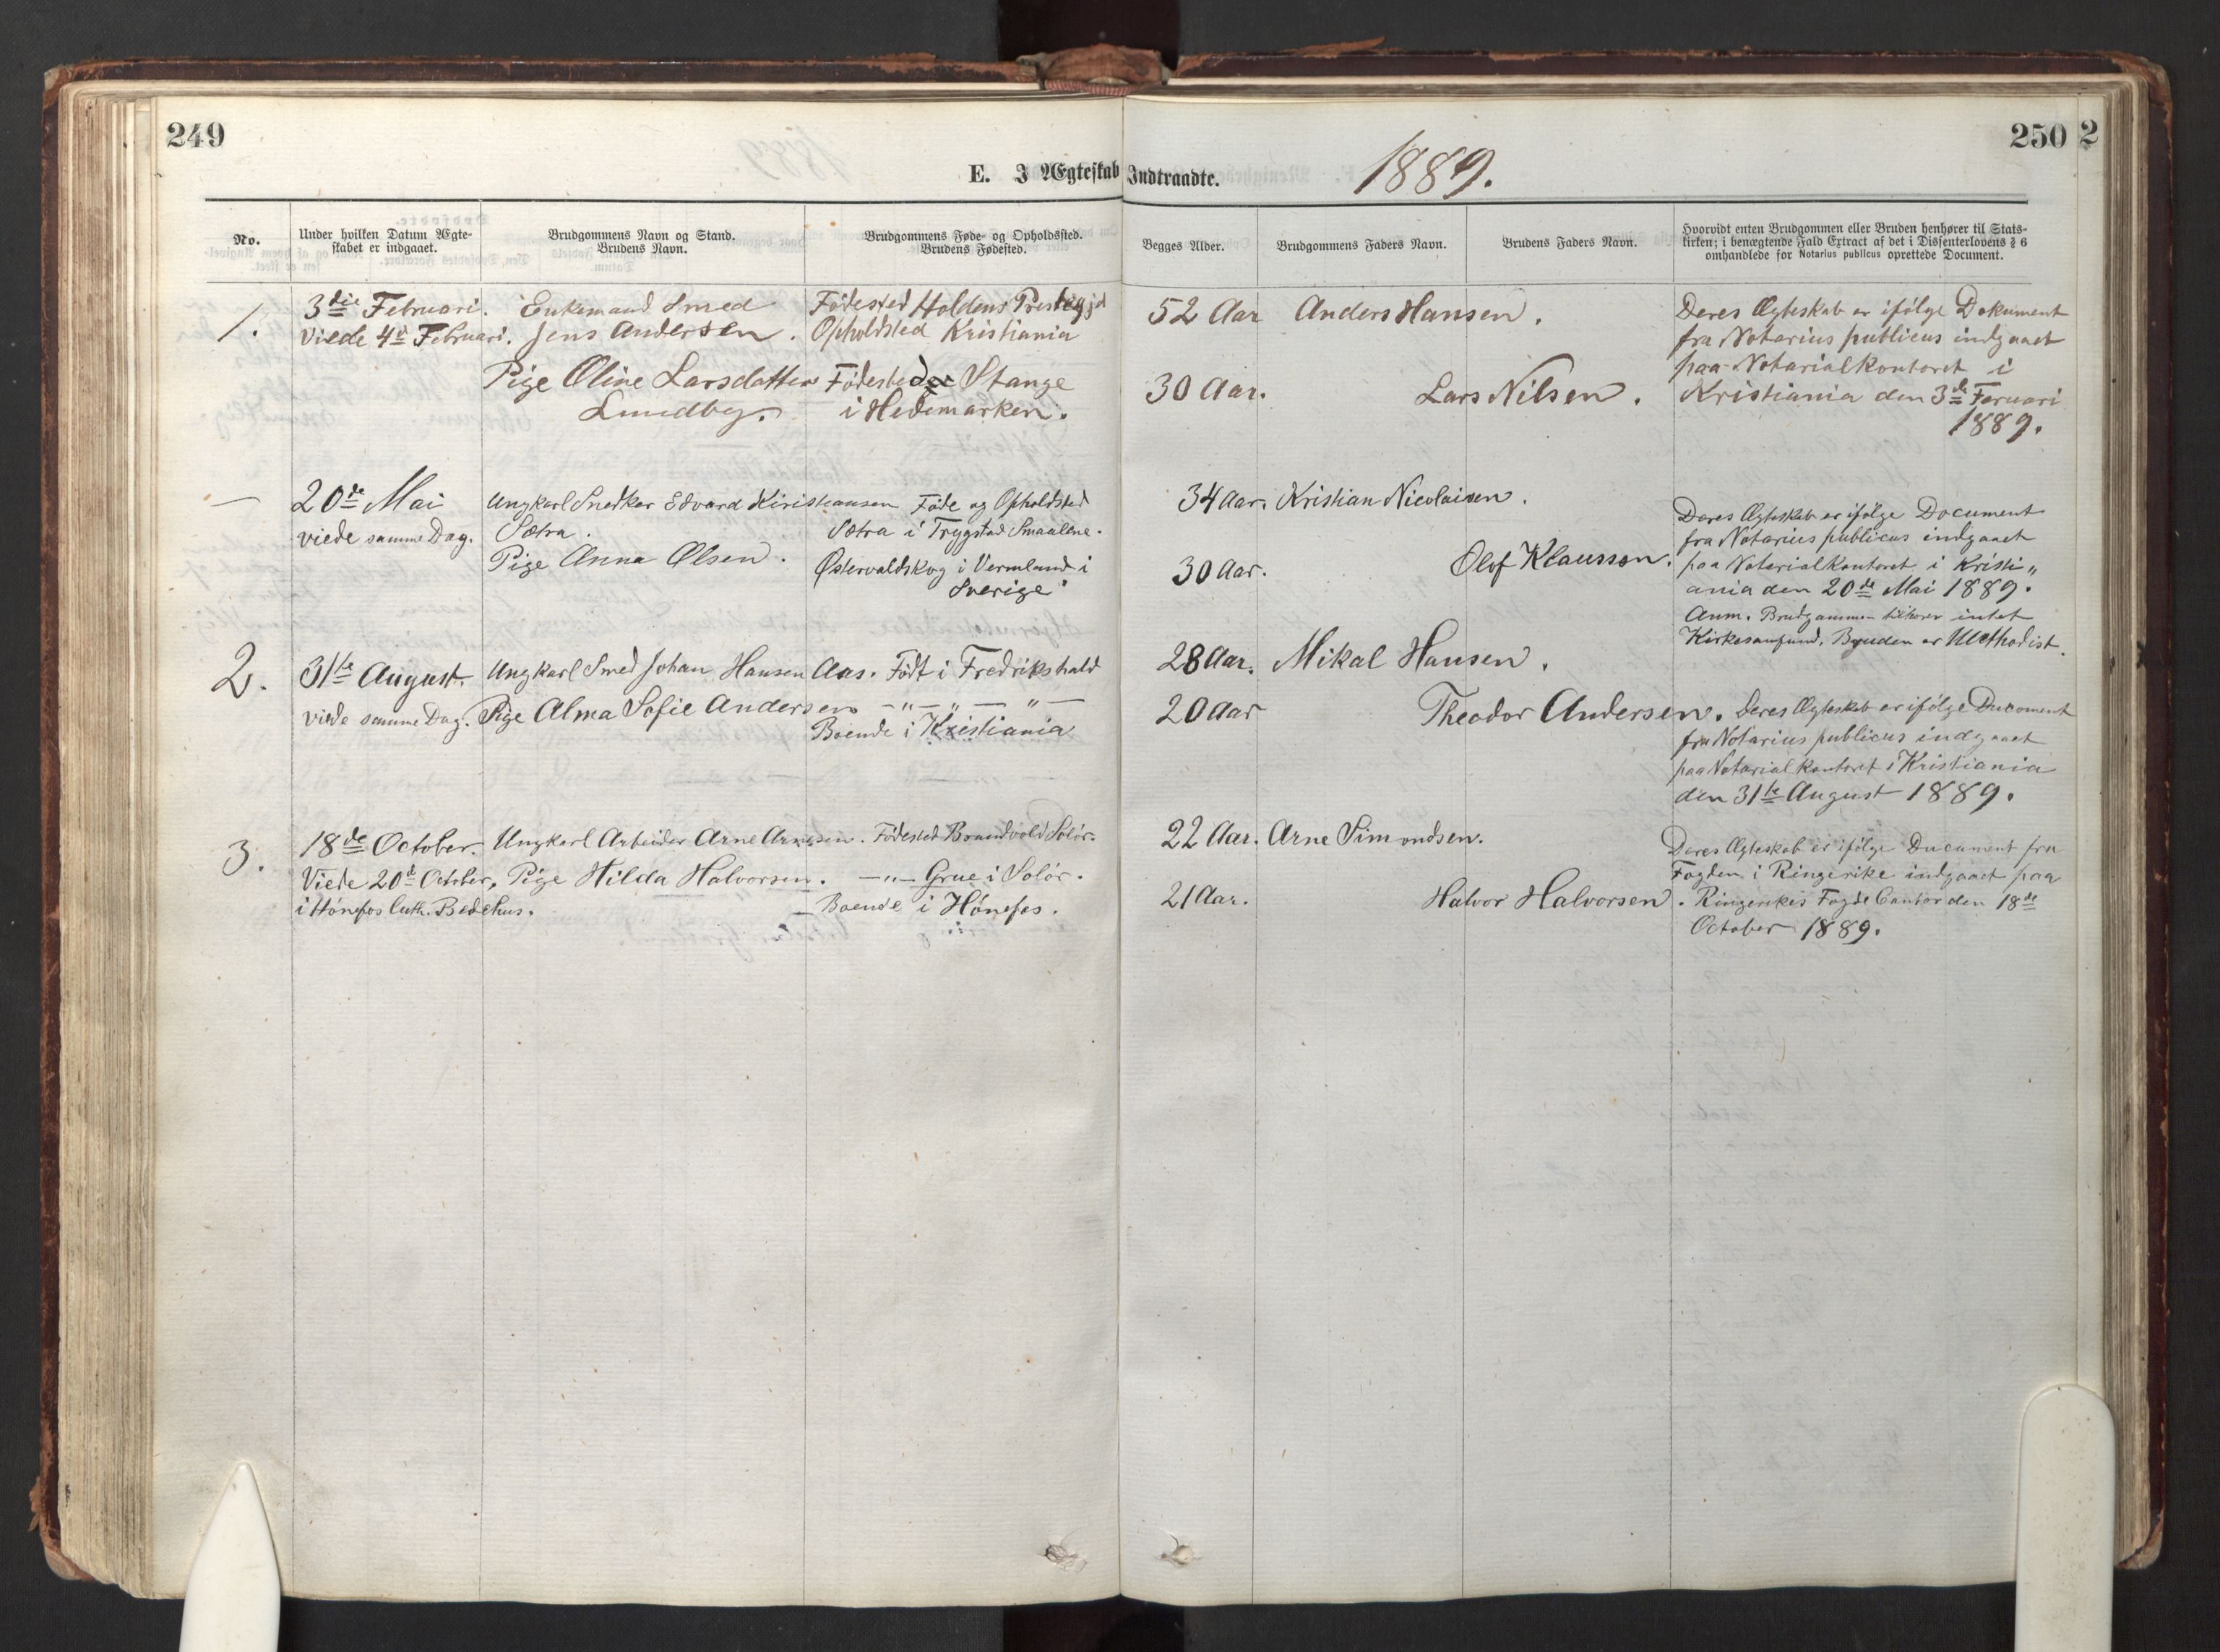 249
250
2
E. I Ægteskab Indtraadte.
1889.
No.
Under hvilken Datum Ægte-
skabet er indgaaet.
Brudgommens Navn og Stand.
Brudens Navn.
Brudgommens Føde- og Opholdssted.
Brudens Fødested.
Begges Alder.
Brudgommens Faders Navn.
Brudens Faders Navn.
Hvorvidt enten Brudgommen eller Bruden henhører til Stats-
kirken; i benægtende Fald Extract af det i Dissenterlovens § 6
omhandlede for Notarius publicus oprettede Document.
1.
3die Februari.
Viede 4de Februari.
Enkemand Smed
Jens Andersen.
Pige Oline Larsdatter
Lundby.
Fødested Holdens Prestegjd
Opholdsted Kristiania
Fødested Stange
i Hedemarken.
52 Aar
30 Aar.
Anders Hansen.
Lars Nilsen.
Deres Ægteskab er ifölge Dokument
fra Notarius publicus indgaaet
paa Notarialkontoret i
Kristiania den 3de Feruari
1889.
—
20de Mai
viede samme Dag.
Ungkarl Snedker Edvard Kiristiansen
Sætra.
Pige Anna Olsen.
Föde og Opholdsted
Sætra i Trygstad Smaalene.
Østervaldskog i Vermland i
Sverige
34 Aar.
30 Aar.
Kristian Nicolaisen.
Olof Klausson.
Deres Ægteskab er ifölge Document
fra Notarius publicus indgaaet
paa Notarialkontoret i Kristi„
ania den 20de Mai 1889.
Anm. Brudgammen tilhører intet
Kirkesamfund, Bruden er Methodist.
2.
31te August.
viede samme Dag.
Ungkarl Smed Johan Hansen Aas.
Pige Alma Sofie Andersen
Födt i Fredrikshald
— „ — „ — „ —
Boende i Kristiania
28 Aar.
20 Aar
Mikal Hansen.
Theodor Andersen.
Deres Ægteskab er ifölge Document
fra Notarius publicus indgaaet
paa Notarialkontoret i Kristiania
den 31te August 1889.
3.
18de October.
Viede 20de October,
i Hönefos Luth. Bedehus.
Ungkarl Arbeider Arne Arnesen.
Pige Hilda Halvorsen.
Födested Brandvold Solör.
— „ — Grue i Solör.
— Boende i Hönefos.
22 Aar.
21 Aar.
Arne Simondsen.
Halvor Halvorsen.
Deres Ægteskab er ifölge Document fra
Fogden i Ringerike indgaaet paa
Ringerikes Fogde Contor den 18de
October 1889.